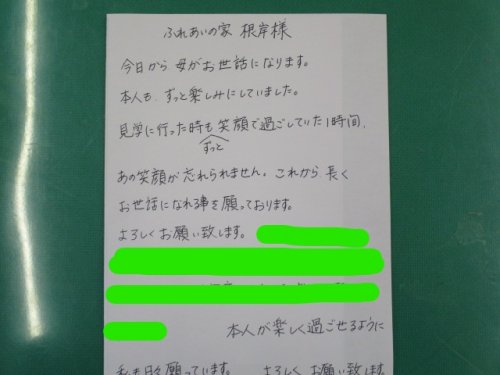 ふれあいの家 根岸様
今日から 母がお世話になります。
本人も、ずっと楽しみにしていました。
見学に行った時もずっと笑顔で過ごしていた1時間、
あの笑顔が忘れられません。これから 長く
お世話になれる事を願っております。
よろしくお願い致します。
本人が楽しく過ごせるように
私も日々願っています。 よろしくお願い致します